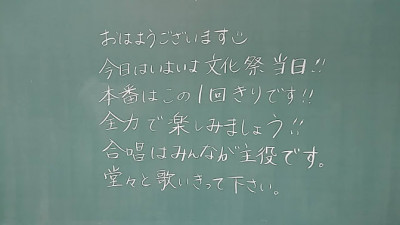 おはようございます☺
今日はいよいよ文化祭当日!!
本番はこの1回きりです!!
全力で楽しみましょう!!
合唱はみんなが主役です。
堂々と歌いきって下さい。